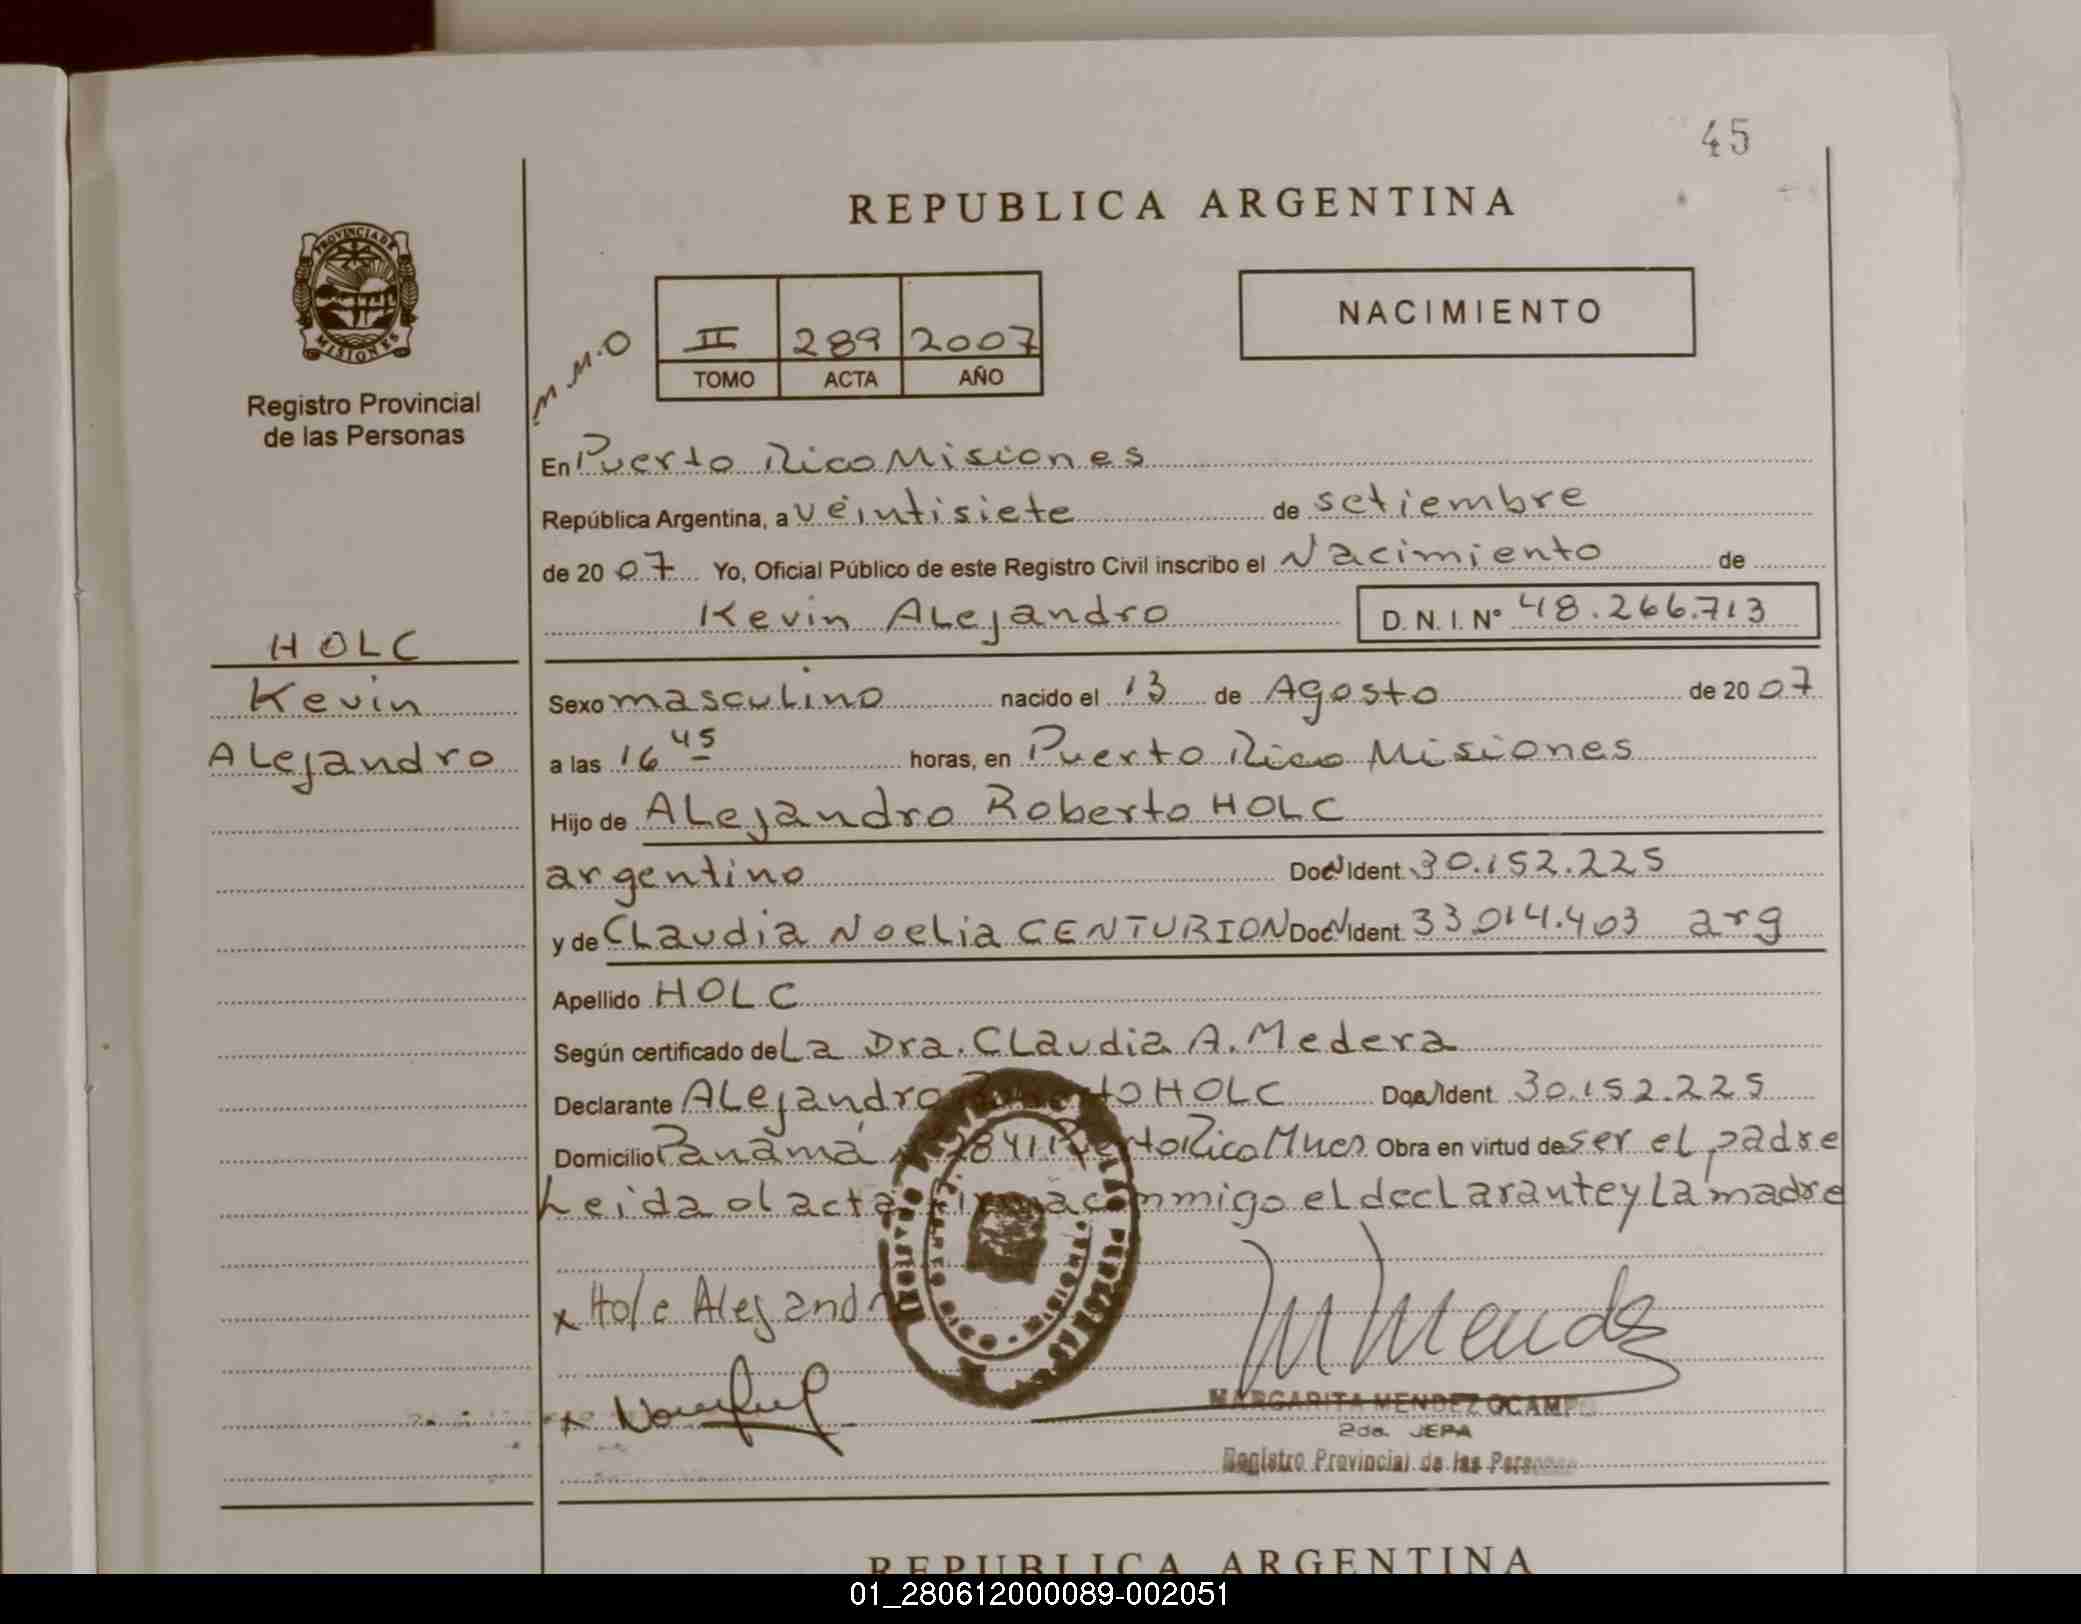 45
REPUBLICA ARGENTINA
PROVINCIA DE
MISIONES
Registro Provincial
de las Personas
M.M.O
II 289 2007
TOMO ACTA AÑO
NACIMIENTO
En Puerto Rico Misiones
República Argentina, a veintisiete de setiembre
de 20 07 Yo, Oficial Público de este Registro Civil inscribo el Nacimiento de
Kevin Alejandro D. N. I. Nº 48.266.713
HOLC
Kevin
Alejandro
Sexo masculino nacido el 13 de Agosto de 20 07
a las 16 45 horas, en Puerto Rico Misiones
Hijo de Alejandro Roberto HOLC
argentino Doc Ident. 30.152.225
y de Claudia Noelia CENTURION Doc Ident. 33.014.403 arg
Apellido HOLC
Según certificado de La Dra. Claudia A. Medera
Declarante Alejandro Roberto HOLC Doc Ident. 30.152.225
Domicilio Panamá 2841 Puerto Rico Mnes Obra en virtud de ser el padre
Leida el acta firma conmigo el declarante y La madre
x Holc Alejandr
x
M Mendez
MARGARITA MENDEZ OCAMPO
2da. JEFA
Registro Provincial de las Personas
REPUBLICA ARGENTINA
01_280612000089-002051